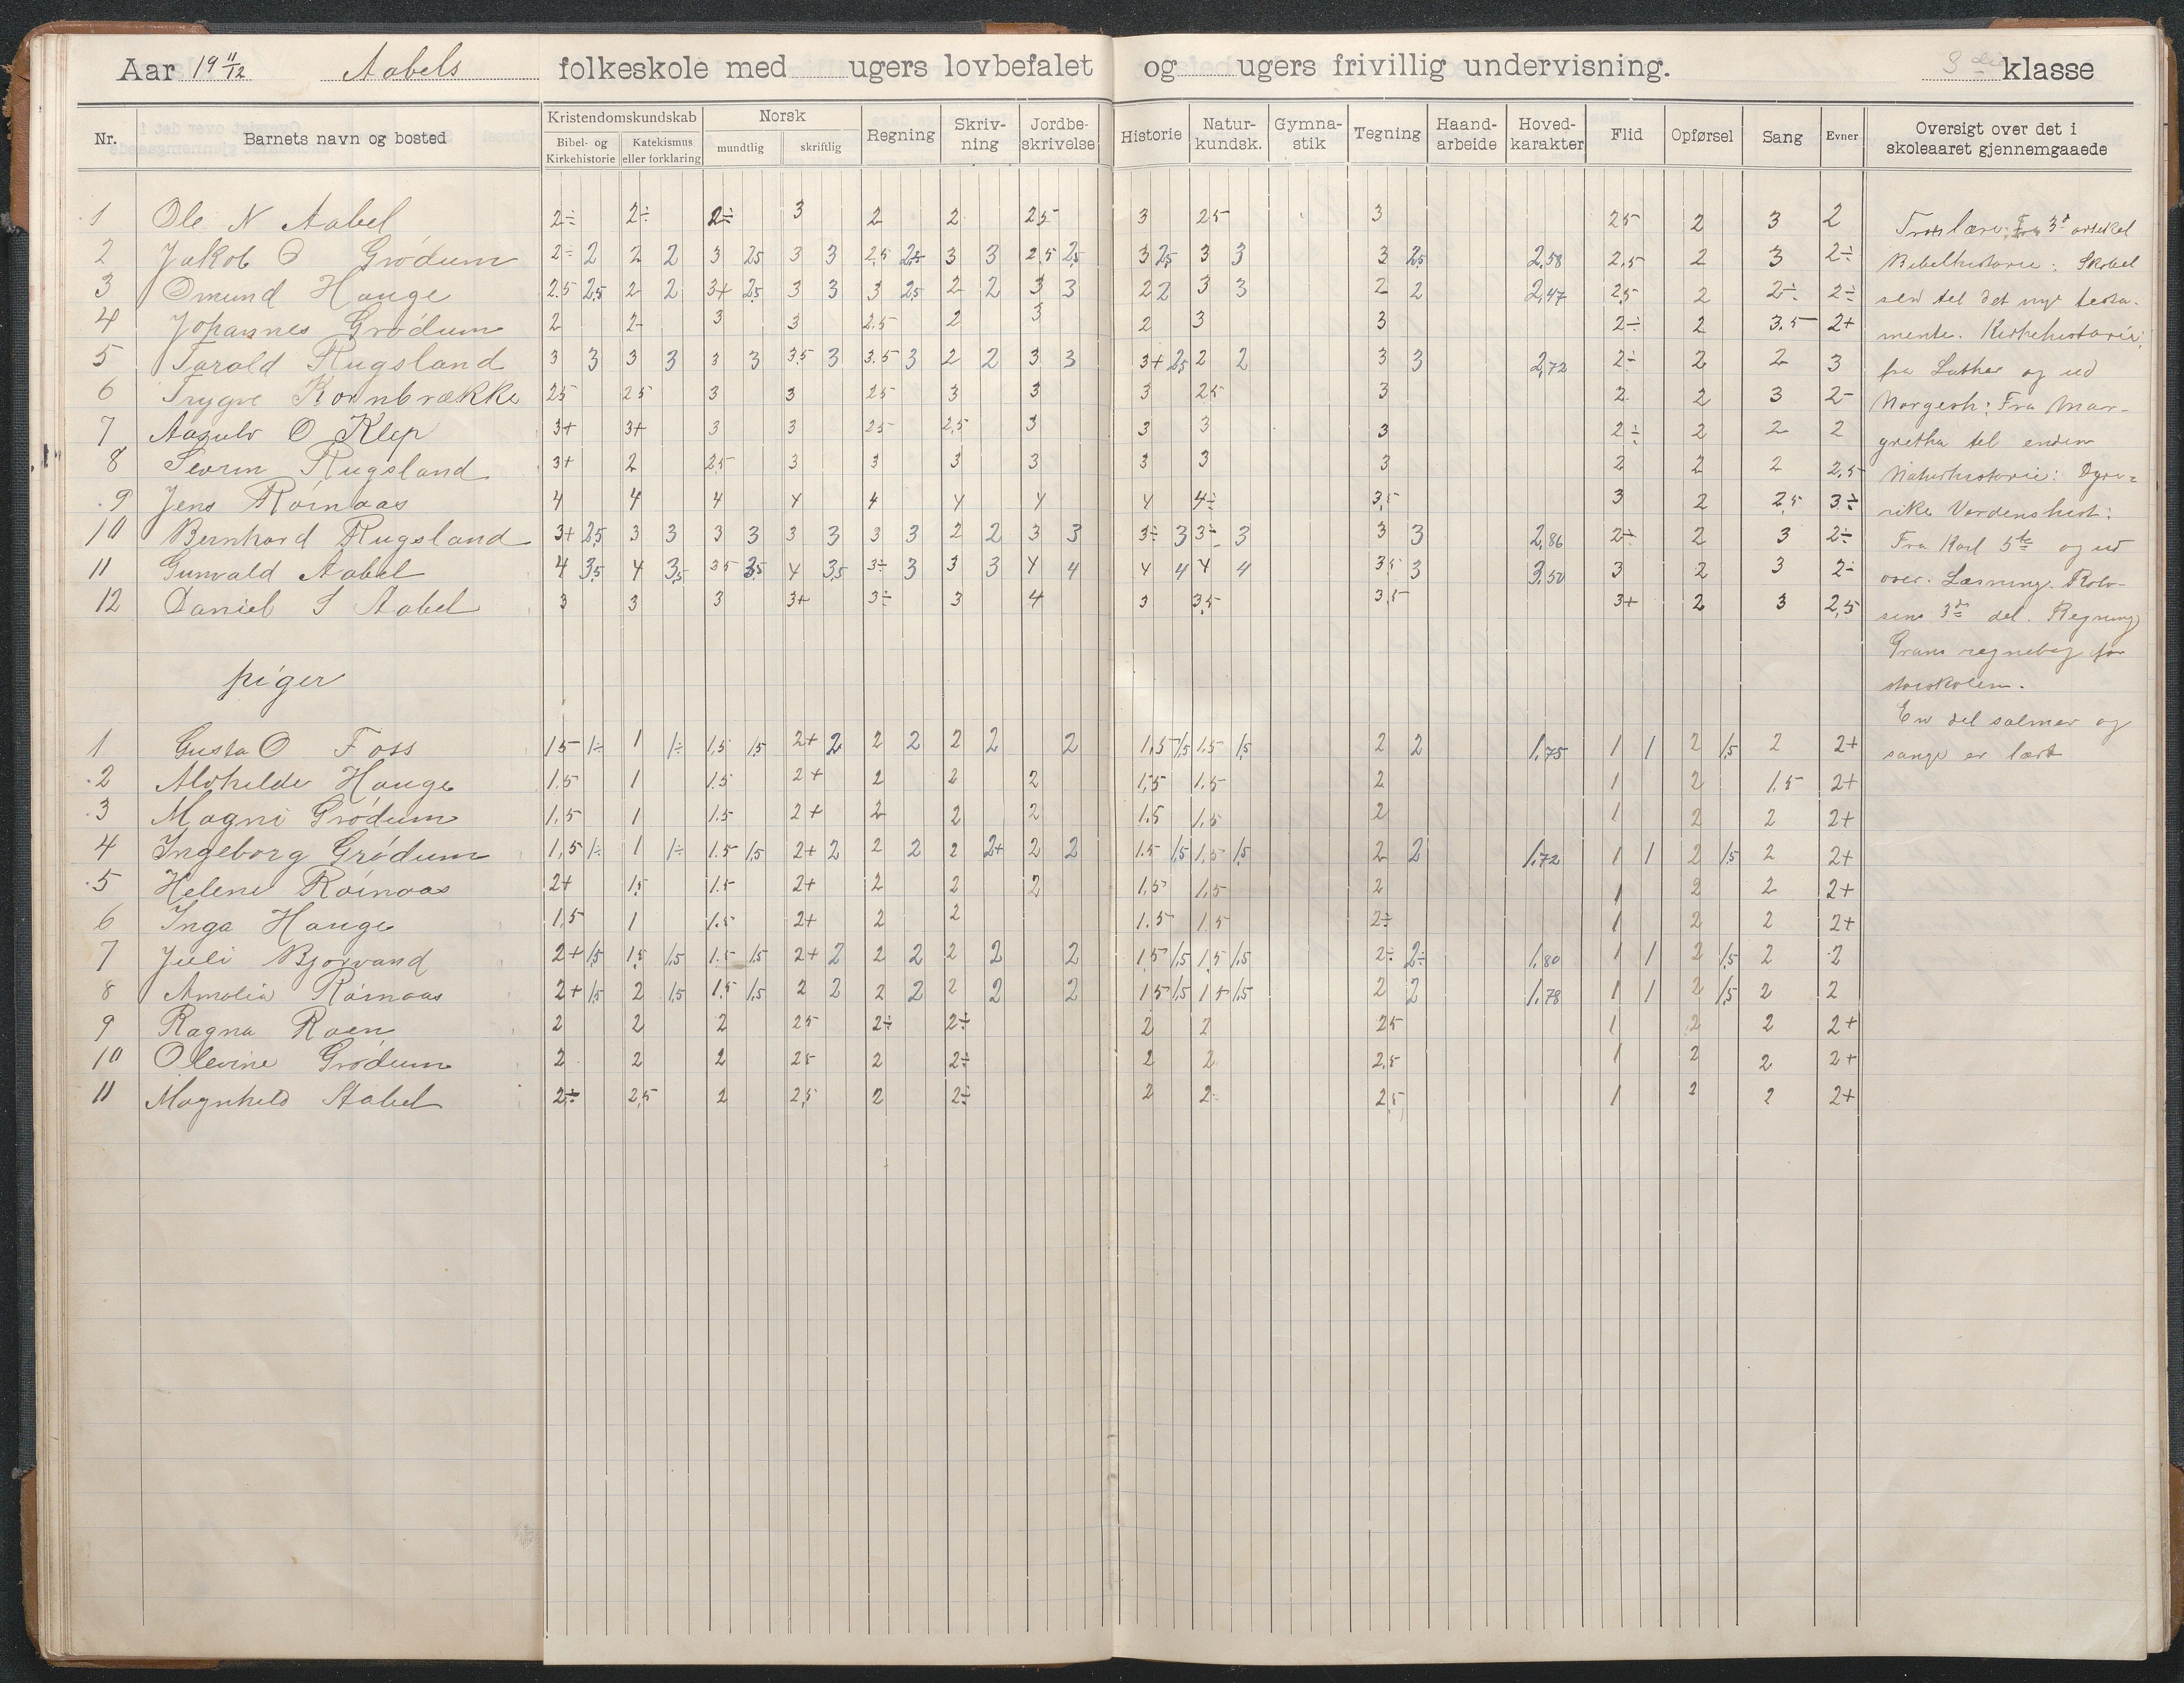 Aar 19 11/12 Aabels folkeskole med ugers lovbefalet og ugers frivillig undervisning. 3die klasse
Nr. Barnets navn og bosted Kristendomskundskab Bibel- og Kirkehistorie Katekismus eller forklaring Norsk mundtlig skriftlig Regning Skriv- ning Jordbe- skrivelse Historie Natur- kundsk. Gymna- stik Tegning Haand- arbeide Hoved- karakter Flid Opførsel Sang Evner Oversigt over det i skoleaaret gjennemgaaede
1 Ole N Aabel 2÷ 2÷ 2÷ 3 2 2 2.5 3 2.5 3 2.5 2 3 2
2 Jakob O Grødum 2÷ 2 2 2 3 2.5 3 3 2.5 2.5 3 3 2.5 2.5 3 2.5 3 3 3 2.5 2,58 2.5 2 3 2÷
3 Omund Hauge 2.5 2.5 2 2 3+ 2.5 3 3 3 2.5 2 2 3 3 2 2 3 3 2 2 2,47 2.5 2 2÷ 2÷
4 Johannes Grødum 2 2 3 3 2.5 2 3 2 3 3 2÷ 2 3.5 2+
5 Tarald Rugsland 3 3 3 3 3 3 3.5 3 3.5 3 2 2 3 3 3+ 2.5 2 2 3 3 2,72 2÷ 2 2 3
6 Trygve Kornbrække 2.5 2.5 3 3 2.5 3 3 3 2.5 3 2 2 3 2-
7 Aasulv O Klep 3+ 3+ 3 3 2.5 2.5 3 3 3 3 2÷ 2 2 2
8 Sevrin Rugsland 3+ 2 2.5 3 3 3 3 3 3 3 2 2 2 2.5
9 Jens Röinaas 4 4 4 4 4 4 4 4 4÷ 3,5 3 2 2,5 3÷
10 Bernhard Rugsland 3+ 2.5 3 3 3 3 3 3 3 3 2 2 3 3 3÷ 3 3÷ 3 3 3 2,86 2÷ 2 3 2÷
11 Gunvald Aabel 4 3,5 4 3,5 3.5 3.5 4 3,5 3÷ 3 3 3 4 4 4 4 4 4 3,5 3 3,50 3 2 3 2÷
12 Daniel S Aabel 3 3 3 3+ 3÷ 3 4 3 3,5 3,5 3+ 2 3 2,5
piger
1 Gusta O Foss 1.5 1÷ 1 1÷ 1.5 1.5 2+ 2 2 2 2 2 2 1,5 1.5 1.5 1.5 2 2 1,75 1 1 2 1.5 2 2+
2 Alvhilde Hauge 1.5 1 1.5 2+ 2 2 2 1,5 1.5 2 1 2 1.5 2+
3 Magni Grödum 1.5 1 1.5 2+ 2 2 2 1.5 1.5 2 1 2 2 2+
4 Ingeborg Grødum 1,5 1÷ 1 1÷ 1.5 1.5 2+ 2 2 2 2 2+ 2 2 1.5 1.5 1.5 1.5 2 2 1,72 1 1 2 1.5 2 2+
5 Helene Röinaas 2+ 1.5 1.5 2+ 2 2 2 1.5 1.5 2 1 2 2 2+
6 Inga Hauge 1,5 1 1.5 2+ 2 2 1.5 1.5 2÷ 1 2 2 2+
7 Juli Bjorvand 2+ 1.5 1.5 1.5 1.5 1.5 2+ 2 2 2 2 2 2 1.5 1.5 1.5 1.5 2÷ 2÷ 1,80 1 1 2 1.5 2 2
8 Amalia Röinaas 2+ 1.5 2 1.5 1.5 1.5 2 2 2 2 2 2 2 1.5 1.5 1.5 1.5 2 2 1,78 1 1 2 1.5 2 2
9 Ragna Roen 2 2 2 2.5 2÷ 2÷ 2 2 2.5 1 2 2 2+
10 Olevine Grødum 2 2 2 2.5 2 2÷ 2 2 2.5 1 2 2 2+
11 Magnhild Aabel 2÷ 2,5 2 2,5 2 2÷ 2 2 2,5 1 2 2 2+
Troslære: Fra 3die artikel
Bibelhistorie:
til det nye testa-
mente. Kirkehistorie:
fra Luther og ud
Norgesh: Fra Mar-
gretha til enden
Naturhistorie: Dyre-
rike Verdenshist:
Fra Karl 5te og ud
over. Læsning. Rolv-
sens 3de del. Regning
regnebog for
storskolen.
En del salmer og
sange er lært